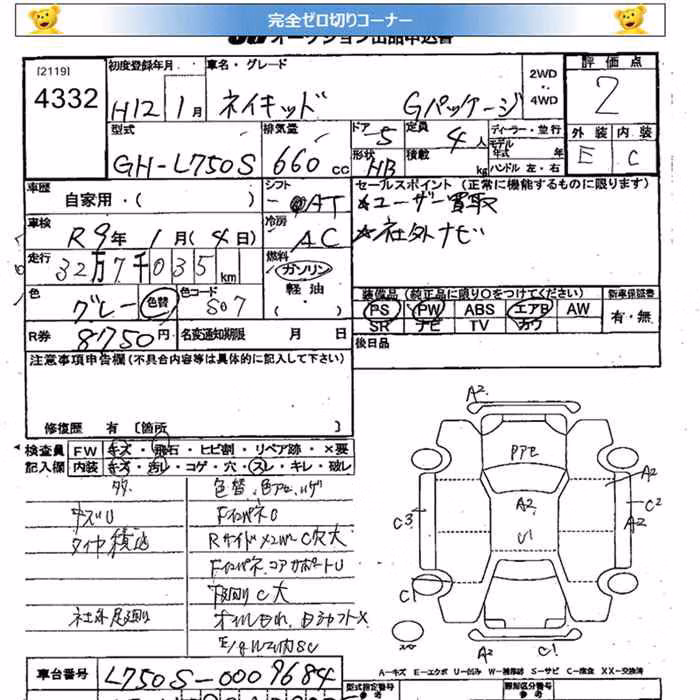 完全ゼロ切りコーナー
オークション出品申込書
[2119]
4332
初度登録年月
H12 1月
車名・グレード
ネイキッド Gパッケージ
2WD
・
4WD
評価点
2
外装 内装
E C
型式
GH-L750S
排気量
660cc
ドア 5
形状 HB
定員 4人
積載 kg
ディーラー・並行
モデル年式 年
ハンドル 左・右
車歴
自家用・( )
シフト
AT
セールスポイント (正常に機能するものに限ります)
☆ユーザー買取
☆社外ナビ
車検
R9年 1月(4日)
冷房
AC
走行
32万7千035km
燃料
ガソリン
軽油
・
( )
色
グレー 色替
色コード
S07
装備品 (純正品に限り○をつけてください)
PS PW ABS エアB AW
SR ナビ TV カワ
新車保証書
有・無
R券
8750円
名変通知期限 月 日
後日品
注意事項申告欄(不具合内容等は具体的に記入して下さい)
修復歴 有 〔箇所 〕
検査員記入欄
FW キズ・飛石・ヒビ割・リペア跡・×要
内装 キズ・汚レ・コゲ・穴・スレ・キレ・破レ
色替、色アセ、ハゲ
キズU
FインパネU
タイヤ積込
Rサイドメンバー C穴大
Fインパネ、コアサポートU
下回りC大
オイルもれ
A2
PPE
A2
U1
C3
A2
C2
A2
C1
A2
C1
A-キズ E-エクボ U-凹み W-補修跡 S-サビ C-腐食 XX-交換済
車台番号
L750S-0009684
型式指定番号
参考
類別区分番号
参考